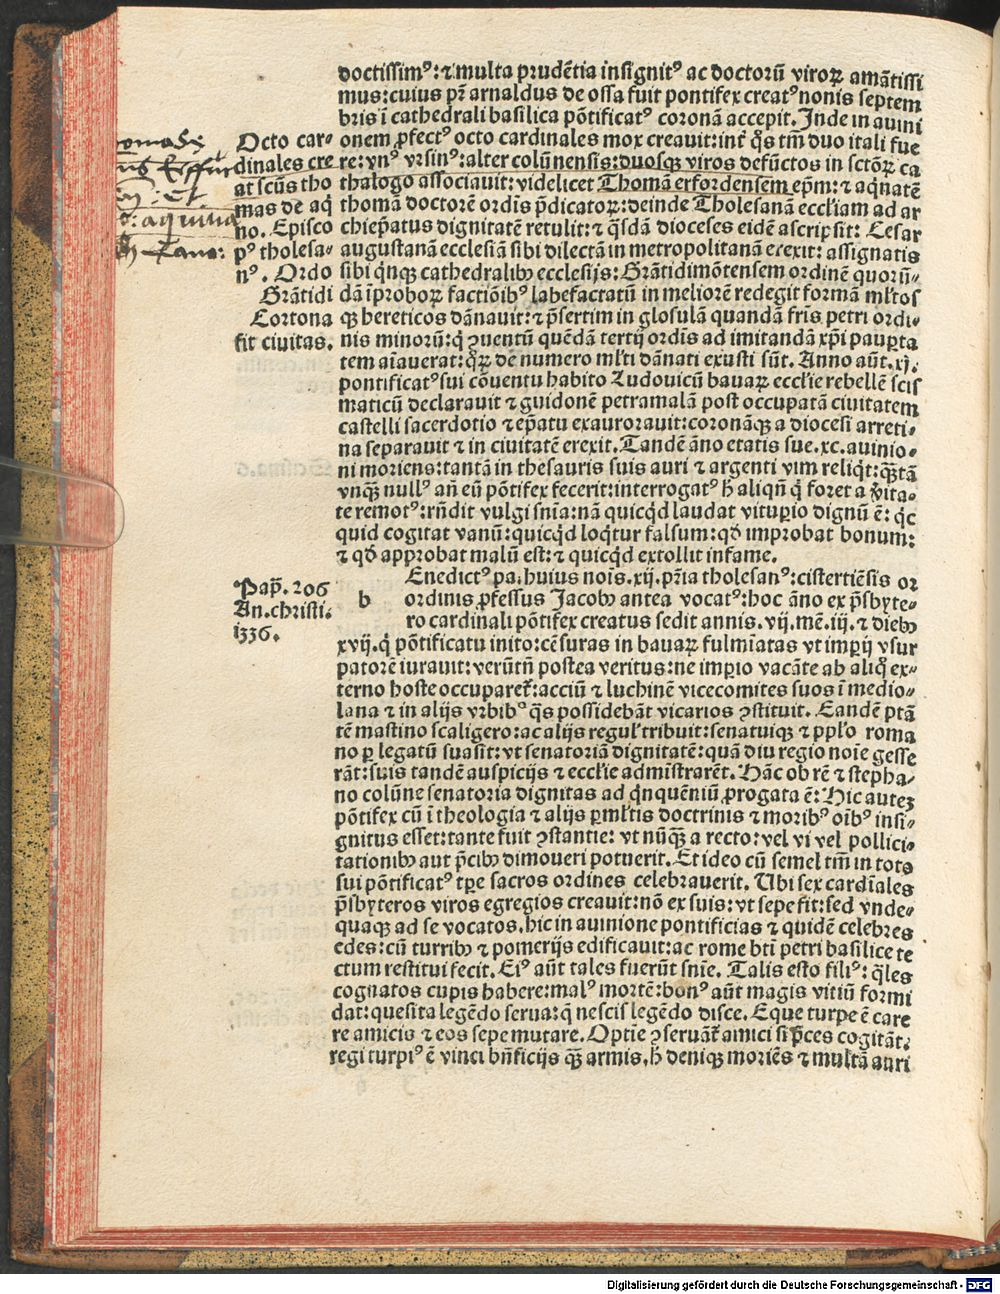 doctissimꝰ: ⁊ multa prudētia insignitꝰ ac doctorū viroꝝ amātissi
mus: cuius pr̄ arnaldus de ossa fuit pontifex creatꝰ nonis septem
bris ī cathedrali basilica pōtificatꝰ coronā accepit. Inde in auini
onem ꝓfectꝰ octo cardinales mox creauit: int̄ q̄s tm̄ duo itali fue
re: vnꝰ vrsinꝰ: alter colūnensis: duosqꝫ viros defūctos in sctōꝝ ca
thalogo associauit: videlicet Thomā erfordensem ep̄m: ⁊ aq̄natē
thomā doctorē ordīs p̄dicatoꝝ: deinde Tholesanā eccl'iam ad ar
chiep̄atus dignitatē retulit: ⁊ q̄sdā dioceses eidē ascripsit: Cesar
augustanā ecclesiā sibi dilectā in metropolitanā erexit: assignatis
sibi q̄nqꝫ cathedralibꝫ ecclesijs: Grātidimōtensem ordinē quorū-
dā īproboꝝ factiōibꝰ labefactatū in meliorē redegit formā ml'tos
qꝫ hereticos dānauit: ⁊ p̄sertim in glosulā quandā fris petri ordi-
nis minorū: q̇ ꝯuentū quēdā tertij ordīs ad imitandā xp̄i pauꝑta
tem aīauerat: q̄ꝝ de numero ml'ti dānati exusti sūt. Anno aūt. xj.
pontificatꝰ sui cōuentu habito Ludouicū bauaꝝ eccl'ie rebellē scis
maticū declarauit ⁊ guidonē petramalā post occupatā ciuitatem
castelli sacerdotio ⁊ ep̄atu exaurorauit: coronāqꝫ a diocesi arreti-
na separauit ⁊ in ciuitatē erexit. Tandē āno etatis sue. xc. auinio-
ni moriens: tantā in thesauris suis auri ⁊ argenti vim reliq̇t: qꝫtā
vnqꝫ nullꝰ añ eū pōtifex fecerit: interrogatꝰ h̄ aliqñ q̇ foret a v̄ita-
te remotꝰ: rñdit vulgi snīa: nā quicq̇d laudat vituꝑio dignū ē: q̇c
quid cogitat vanū: quicq̇d loq̇tur falsum: qđ improbat bonum:
⁊ qđ approbat malū est: ⁊ quicq̇d extollit infame.
Octo car-
dinales cre
at scūs tho
mas de aq̄
no. Episco
pꝰ tholesa-
nꝰ. Ordo
Grātidi
Cortona
fit ciuitas.
Enedictꝰ pa. huius nois. xij. pr̄ia tholesanꝰ: cistertiēsis or
b ordinis ꝓfessus Jacobꝫ antea vocatꝰ: hoc āno ex p̄sbyte-
ro cardinali pōtifex creatus sedit annis. vij. mē. iij. ⁊ diebꝫ
xvij. q̇ pōtificatu inito: cēsuras in bauaꝝ fulmīatas vt imꝑij vsur
patorē iurauit: verūtñ postea veritus: ne imꝑio vacāte ab aliq̄ ex-
terno hoste occuparet̄: acciū ⁊ luchinē vicecomites suos ī medio-
lana ⁊ in alijs vrbibꝰ q̄s possidebāt vicarios ꝯstituit. Eandē ptā
tē mastino scaligero: ac alijs regul' tribuit: senatuiqꝫ ⁊ ppl'o roma
no ꝑ legatū suasit: vt senatoriā dignitatē: quā diu regio noīe gesse
rāt: suis tandē auspicijs ⁊ eccl'ie admīstrarēt. Hāc ob rē ⁊ stepha-
no colūne senatoria dignitas ad q̄nquēniū ꝓrogata ē: Hic auteꝫ
pōtifex cū ī theologia ⁊ alijs ꝑml'tis doctrinis ⁊ moribꝰ oībꝰ insi-
gnitus esset: tante fuit ꝯstantie: vt nūqꝫ a recto: vel vi vel pollici-
tationibꝫ aut p̄cibꝫ dimoueri potuerit. Et ideo cū semel tm̄ in toto
sui pōtificatꝰ tꝑe sacros ordines celebrauerit. Ubi sex cardīales
p̄sbyteros viros egregios creauit: nō ex suis: vt sepe fit: sed vnde-
quaqꝫ ad se vocatos. hic in auinione pontificias ⁊ quidē celebres
edes: cū turribꝫ ⁊ pomerijs edificauit: ac rome bt̄i petri basilice te
ctum restitui fecit. Eiꝰ aūt tales fuerūt snīe. Talis esto filiꝰ: q̄les
cognatos cupis habere: malꝰ mortē: bonꝰ aūt magis vitiū formi
dat: quesita legēdo serua: q̄ nescis legēdo disce. Eque turpe ē care
re amicis ⁊ eos sepe mutare. Optīe ꝯseruāt̄ amici si p̄ces cogitāt:
regi turpiꝰ ē vinci bñficijs qꝫ armis. h̄ deniqꝫ moriēs ⁊ multā auri
Pap̄. 206
An. christi.
1336.
Digitalisierung gefördert durch die Deutsche Forschungsgemeinschaft - DFG